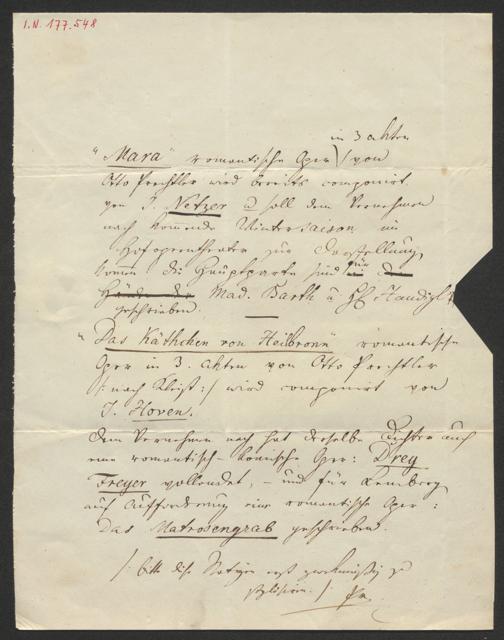 I.N. 177.548
in 3 akten
"Mara" romantische Oper / von
Otto Prechtler wird bereits componirt
von J. Netzer u soll dem Vernehmen
nach komende Wintersaison im
Hofoperntheater zur Darstellung
komen die Hauptparte sind für
Mad. Barth u H Staudigl
geschrieben.
"Das Käthchen von Heilbronn" romantische
Oper in 3. Akten von Otto Prechtler
/: nach Kleist :/ wird componirt von
J. Hoven.
Dem Vernehmen nach hat derselbe Dichter auch
eine romantisch-komische Oper: Drey
Freyer vollendet, - und für Lemberg
auf Aufforderung eine romantische Oper:
Das Matrosengrab geschrieben.
/: bitte diese Notizen erst zweckmäßig zu
stylisiren. :/